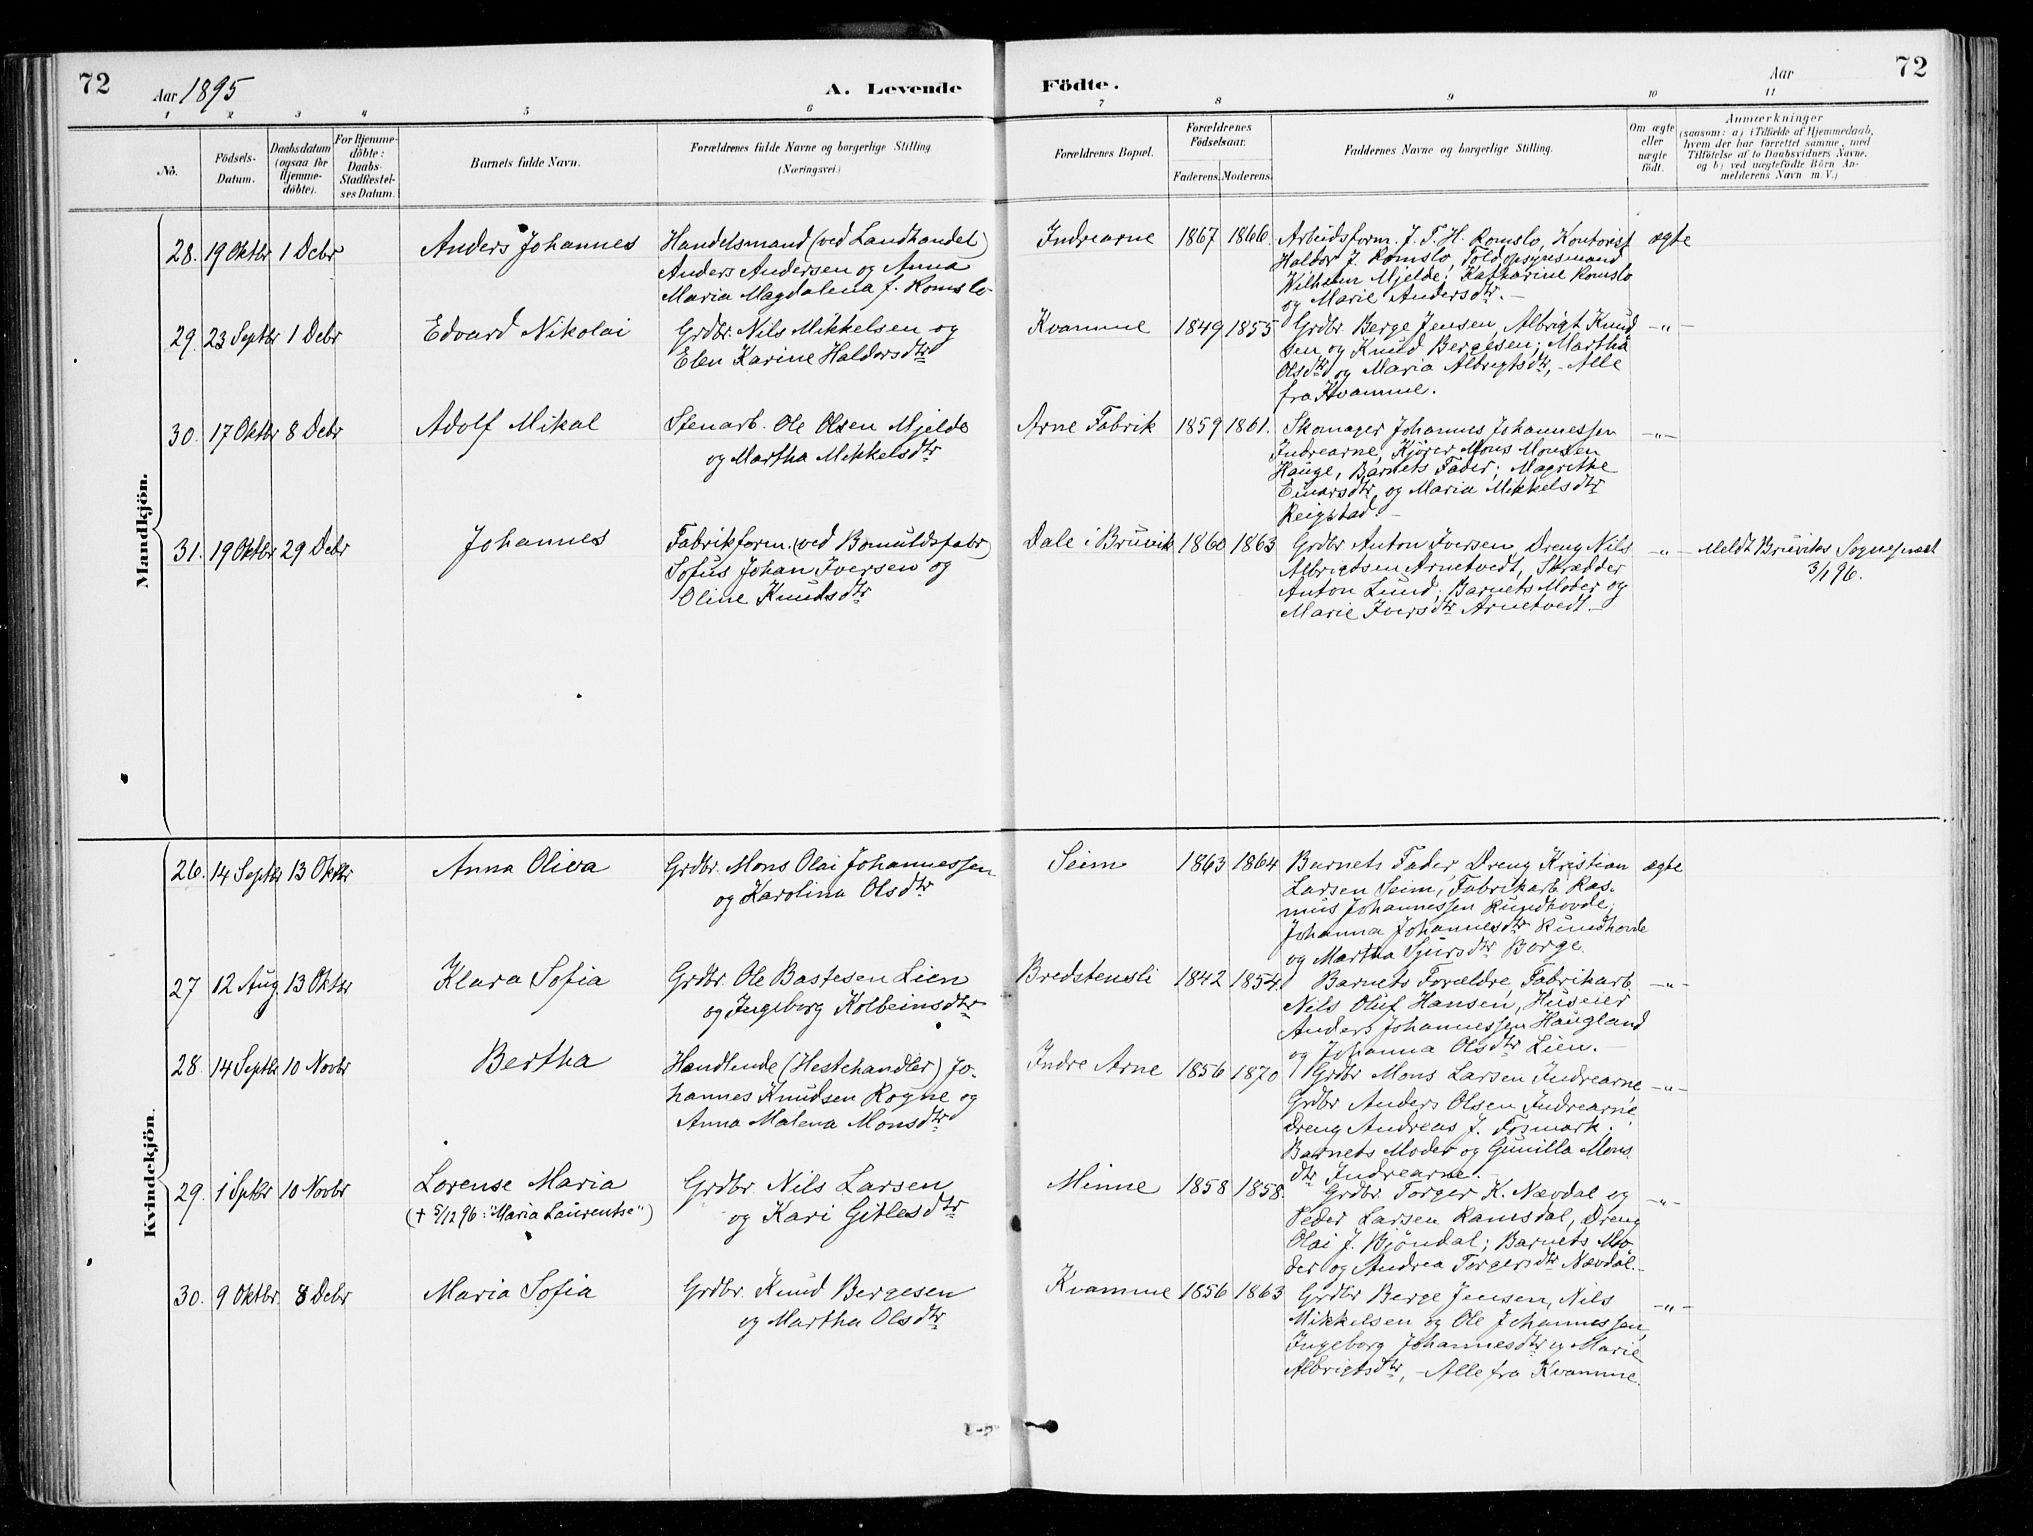 72
Aar 1895
A. Levende
Födte.
Aar
72
1 2 3 4 5 6 7 8 9 10 11
No.
Födsels-
Datum.
Daabsdatum
(ogsaa for
Hjemme-
döbte).
For Hjemme-
döbte:
Daabs-
Stadfæstel-
ses Datum.
Barnets fulde Navn.
Forældrenes fulde Navne og borgerlige Stilling
(Næringsvei.)
Forældrenes Bopæl.
Forældrenes
Födselsaar.
Faderens. Moderens.
Faddernes Navne og borgerlige Stilling.
Om ægte
eller
uægte
födt.
Anmærkninger
(saasom: a) i Tilfælde af Hjemmedaab,
hvem der har forrettet samme, med
Tilföielse af to Daabsvidners Navne,
og b) ved uægtefödte Börn An-
melderens Navn m. V.)
Mandkjön.
28. 19 Oktbr 1 Debr
Anders Johannes
Handelsmand (ved Landhandel)
Anders Andersen og Anna
Maria Magdalena J. Romslo
Indrearne
1867 1866.
Arbeidsform. J. T. H. Romslo, Kontorist
Haldor J. Romslo, Toldopsynsmand
Wilhelm Mjelde; Katharine Romslo
og Marie Andersdtr. -
ægte
29. 23 Septbr 1 Debr
Edvard Nikolai
Grdbr. Nils Mikkelsen og
Elen Karine Haldorsdtr
Kvamme
1849 1855
Grdbr Berge Jensen, Albrigt Knud
sen og Knud Bergesen; Martha
Olsdtr og Maria Albrigtsdtr, - Alle
fra Kvamme.
-"-
30. 17 Oktbr 8 Debr
Adolf Mikal
Stenarb. Ole Olsen Mjelde
og Martha Mikkelsdtr
Arne Fabrik
1859 1861.
Skomager Johannes Johannessen
Indrearne, Kjører Mons Monsen
Hauge, Barnets Fader; Magrethe
Einarsdtr og Maria Mikkelsdtr
Reigstad. -
-"-
31. 19 Oktbr 29 Debr
Johannes
Fabrikform. (ved Bomuldsfabr)
Sofus Johan Iversen og
Oline Knudsdtr
Dale i Bruvik
1860 1863
Grdbr Anton Iversen, Dreng Nils
Albrigtsen Arnetvedt, Skrædder
Anton Lund; Barnets Moder og
Marie Iversdtr Arnetvedt -
-"-
Meldt Bruviks Sognepræst
3/1 96.
Kvindekjön.
26. 14 Septbr 13 Oktbr
Anna Oliva
Grdbr. Mons Olai Johannessen
og Karolina Olsdtr
Seim
1863 1864
Barnets Fader, Dreng Kristian
Larsen Seim, Fabrikarb. Ras-
mus Johannessen Rundhovde;
Johanna Johannesdtr Rundhovde
og Martha Sjursdtr Borge.
ægte
27 12 Aug 13 Oktbr
Klara Sofia
Grdbr. Ole Bastesen Lien
og Ingeborg Kolbeinsdtr
Bredstensli
1842 1854.
Barnets Forældre, Fabrikarb.
Nils Oluf Hansen, Huseier
Anders Johannessen Haugland
og Johanna Olsdtr Lien. -
-"-
28. 14 Septbr 10 Novbr
Bertha
Handlende (Hestehandler) Jo-
hannes Knudsen Rogne og
Anna Malena Monsdtr
Indre Arne
1856 1870
Grdbr Mons Larsen Indrearne
Grdbr Anders Olsen Indrearne,
Dreng Andreas J. Fosmark;
Barnets Moder og Gunilla Mons
dtr Indrearne. -
-"-
29. 1 Sptbr 10 Novbr
Lorense Maria
(+ 5/12 96: "Maria Laurentse")
Grdbr Nils Larsen
og Kari Gitlesdtr
Minne
1858 1858.
Grdbr. Torger K. Nævdal og
Peder Larsen Ramsdal, Dreng
Olai J. Bjöndal; Barnets Mo
der og Andrea Torgersdtr Nævdal. -
-"-
30. 9 Oktbr 8 Debr
Maria Sofia
Grdbr. Knud Bergesen
og Martha Olsdtr
Kvamme
1856 1863
Grdbr Berge Jensen, Nils
Mikkelsen og Ole Johannessen,
Ingeborg Johannesdtr og Marie
Albrigtsdtr, - Alle fra Kvamme.
-"-